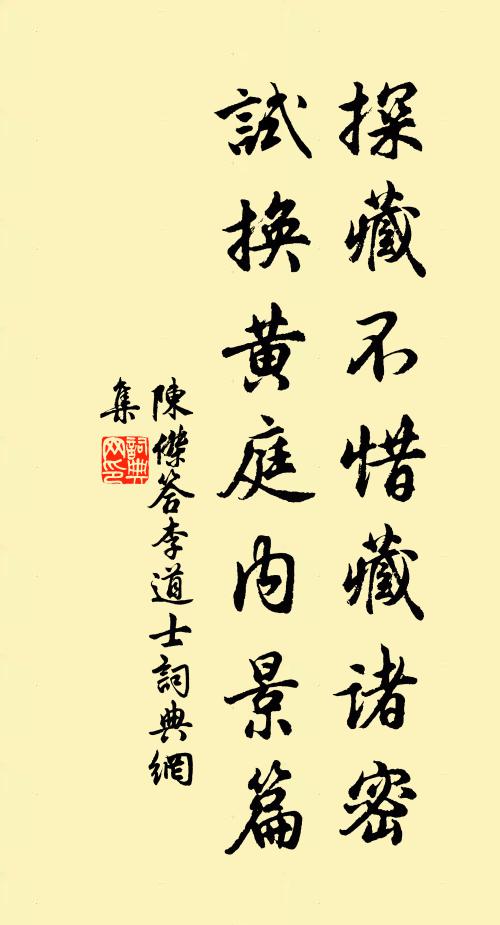 探藏不惜藏諸密
試換黃庭內景篇
陳傑答李道士詞典網
集
詞典網印